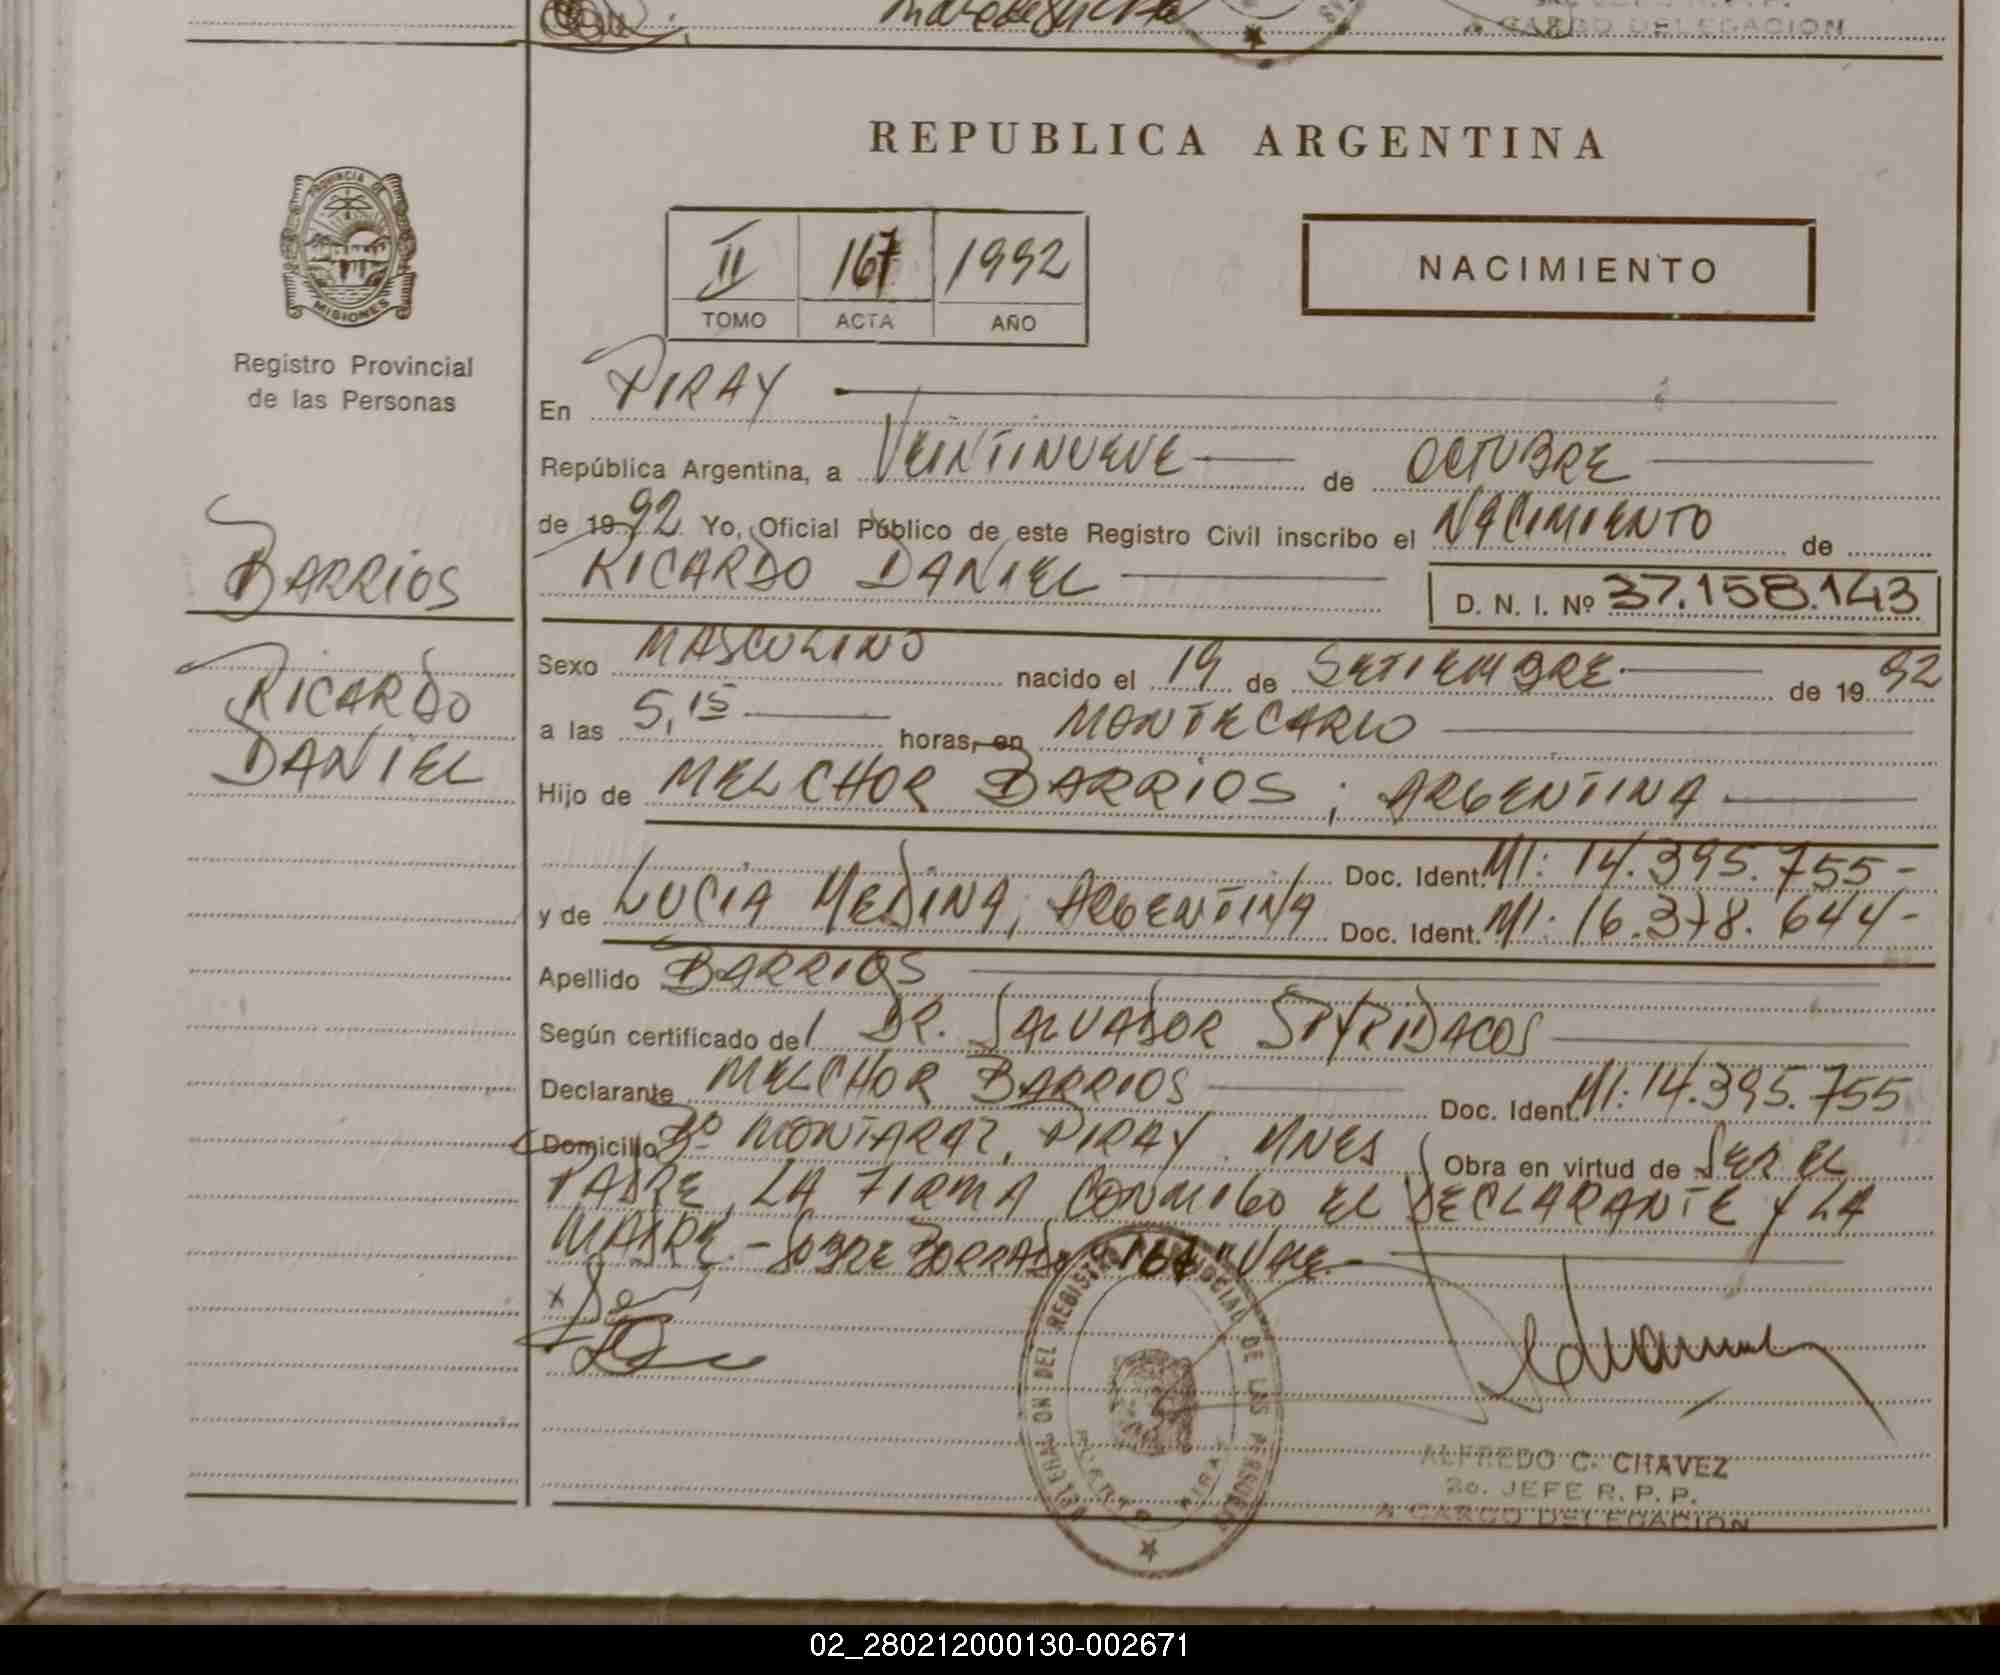 A CARGO DELEGACION
REPUBLICA ARGENTINA
PROVINCIA DE
MISIONES
Registro Provincial
de las Personas
II 167 1992
TOMO ACTA AÑO
NACIMIENTO
En PIRAY
República Argentina, a VEINTINUEVE de OCTUBRE
de 1992 Yo, Oficial Público de este Registro Civil inscribo el NACIMIENTO de
RICARDO DANIEL
D. N. I. Nº 37.158.143
BARRIOS
RICARDO
DANIEL
Sexo MASCULINO nacido el 19 de SETIEMBRE de 1992
a las 5,15 horas, en MONTECARLO
Hijo de MELCHOR BARRIOS; ARGENTINA
Doc. Ident. MI: 14.395.755-
y de LUCIA MEDINA, ARGENTINA Doc. Ident. MI: 16.378.644-
Apellido BARRIOS
Según certificado del DR. SALVADOR SPYRIDACOS
Declarante MELCHOR BARRIOS Doc. Ident. MI: 14.395.755
Domicilio Bº MONTARAZ, PIRAY. MNES Obra en virtud de SER EL
PADRE, LA FIRMA CONMIGO EL DECLARANTE Y LA
MADRE.- SOBRE BORRADO "167" VALE.-
DELEGACION DEL REGISTRO PROVINCIAL DE LAS PERSONAS
PUERTO PIRAY
ALFREDO C. CHAVEZ
2o. JEFE R. P. P.
A CARGO DELEGACION
02_280212000130-002671